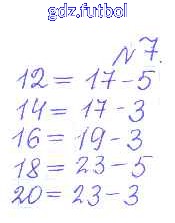 gdz.futbol
№ 7.
12 = 17 - 5
14 = 17 - 3
16 = 19 - 3
18 = 23 - 5
20 = 23 - 3